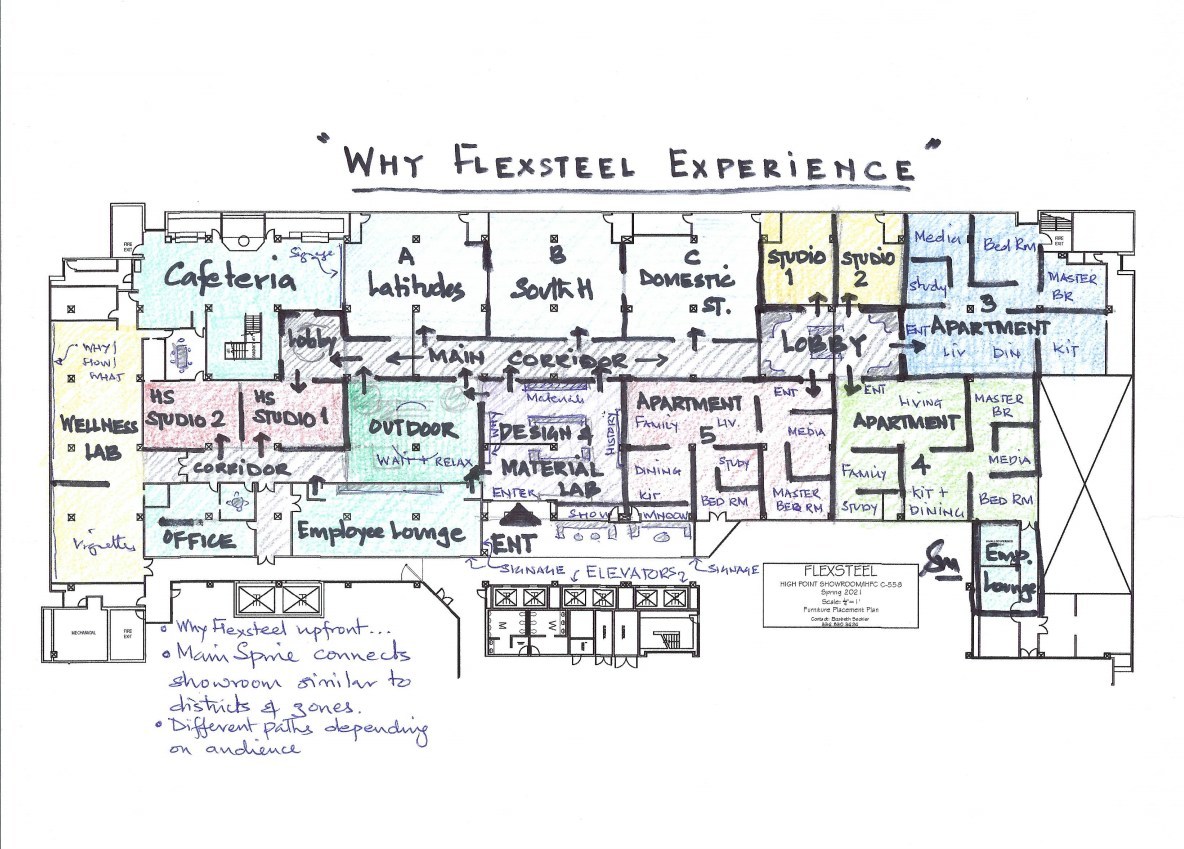 "WHY FLEXSTEEL EXPERIENCE"
FIRE
EXIT
Cafeteria
Signage
A
Latitudes
B
South H
C
DOMESTIC
ST.
STUDIO
1
STUDIO
2
Media
Bed Rm
Study
FIRE
EXIT
MASTER
BR
3
APARTMENT
ENT
LIV
DIN
KIT
Lobby
MAIN CORRIDOR
LOBBY
WHY/
HOW/
WHAT
WELLNESS
LAB
Vignettes
HS
STUDIO 2
HS
STUDIO 1
CORRIDOR
OUTDOOR
WAIT + RELAX
Materials
WHY
DESIGN &
MATERIAL
LAB
HISTORY
ENTER
APARTMENT
5
FAMILY
LIV.
DINING
Kit
STUDY
BED RM
ENT
MEDIA
MASTER
BED RM
ENT
LIVING
APARTMENT
4
FAMILY
STUDY
KIT +
DINING
MASTER
BR
MEDIA
BED RM
OFFICE
Employee Lounge
SHOW WINDOW
ENT
SIGNAGE
ELEVATORS
SIGNAGE
Emp.
Lounge
FLEXSTEEL
HIGH POINT SHOWROOM/IHFC C-558
Spring 2021
Furniture Placement Plan
MECHANICAL
FIRE
EXIT
M
W
• Why Flexsteel upfront...
• Main Spine connects
showroom similar to
districts & zones.
• Different paths depending
on audience